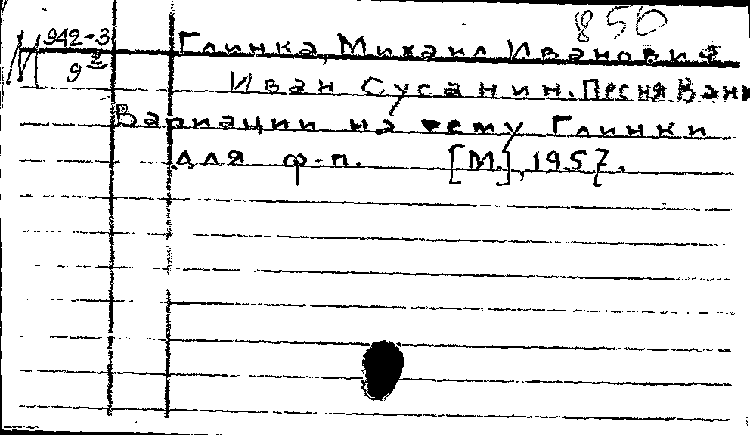 850
М 942-3
9
Глинка, Михаил Иванович
Иван Сусанин. Песня Вани
Вариации на тему Глинки
для ф-п. [М.], 1957.